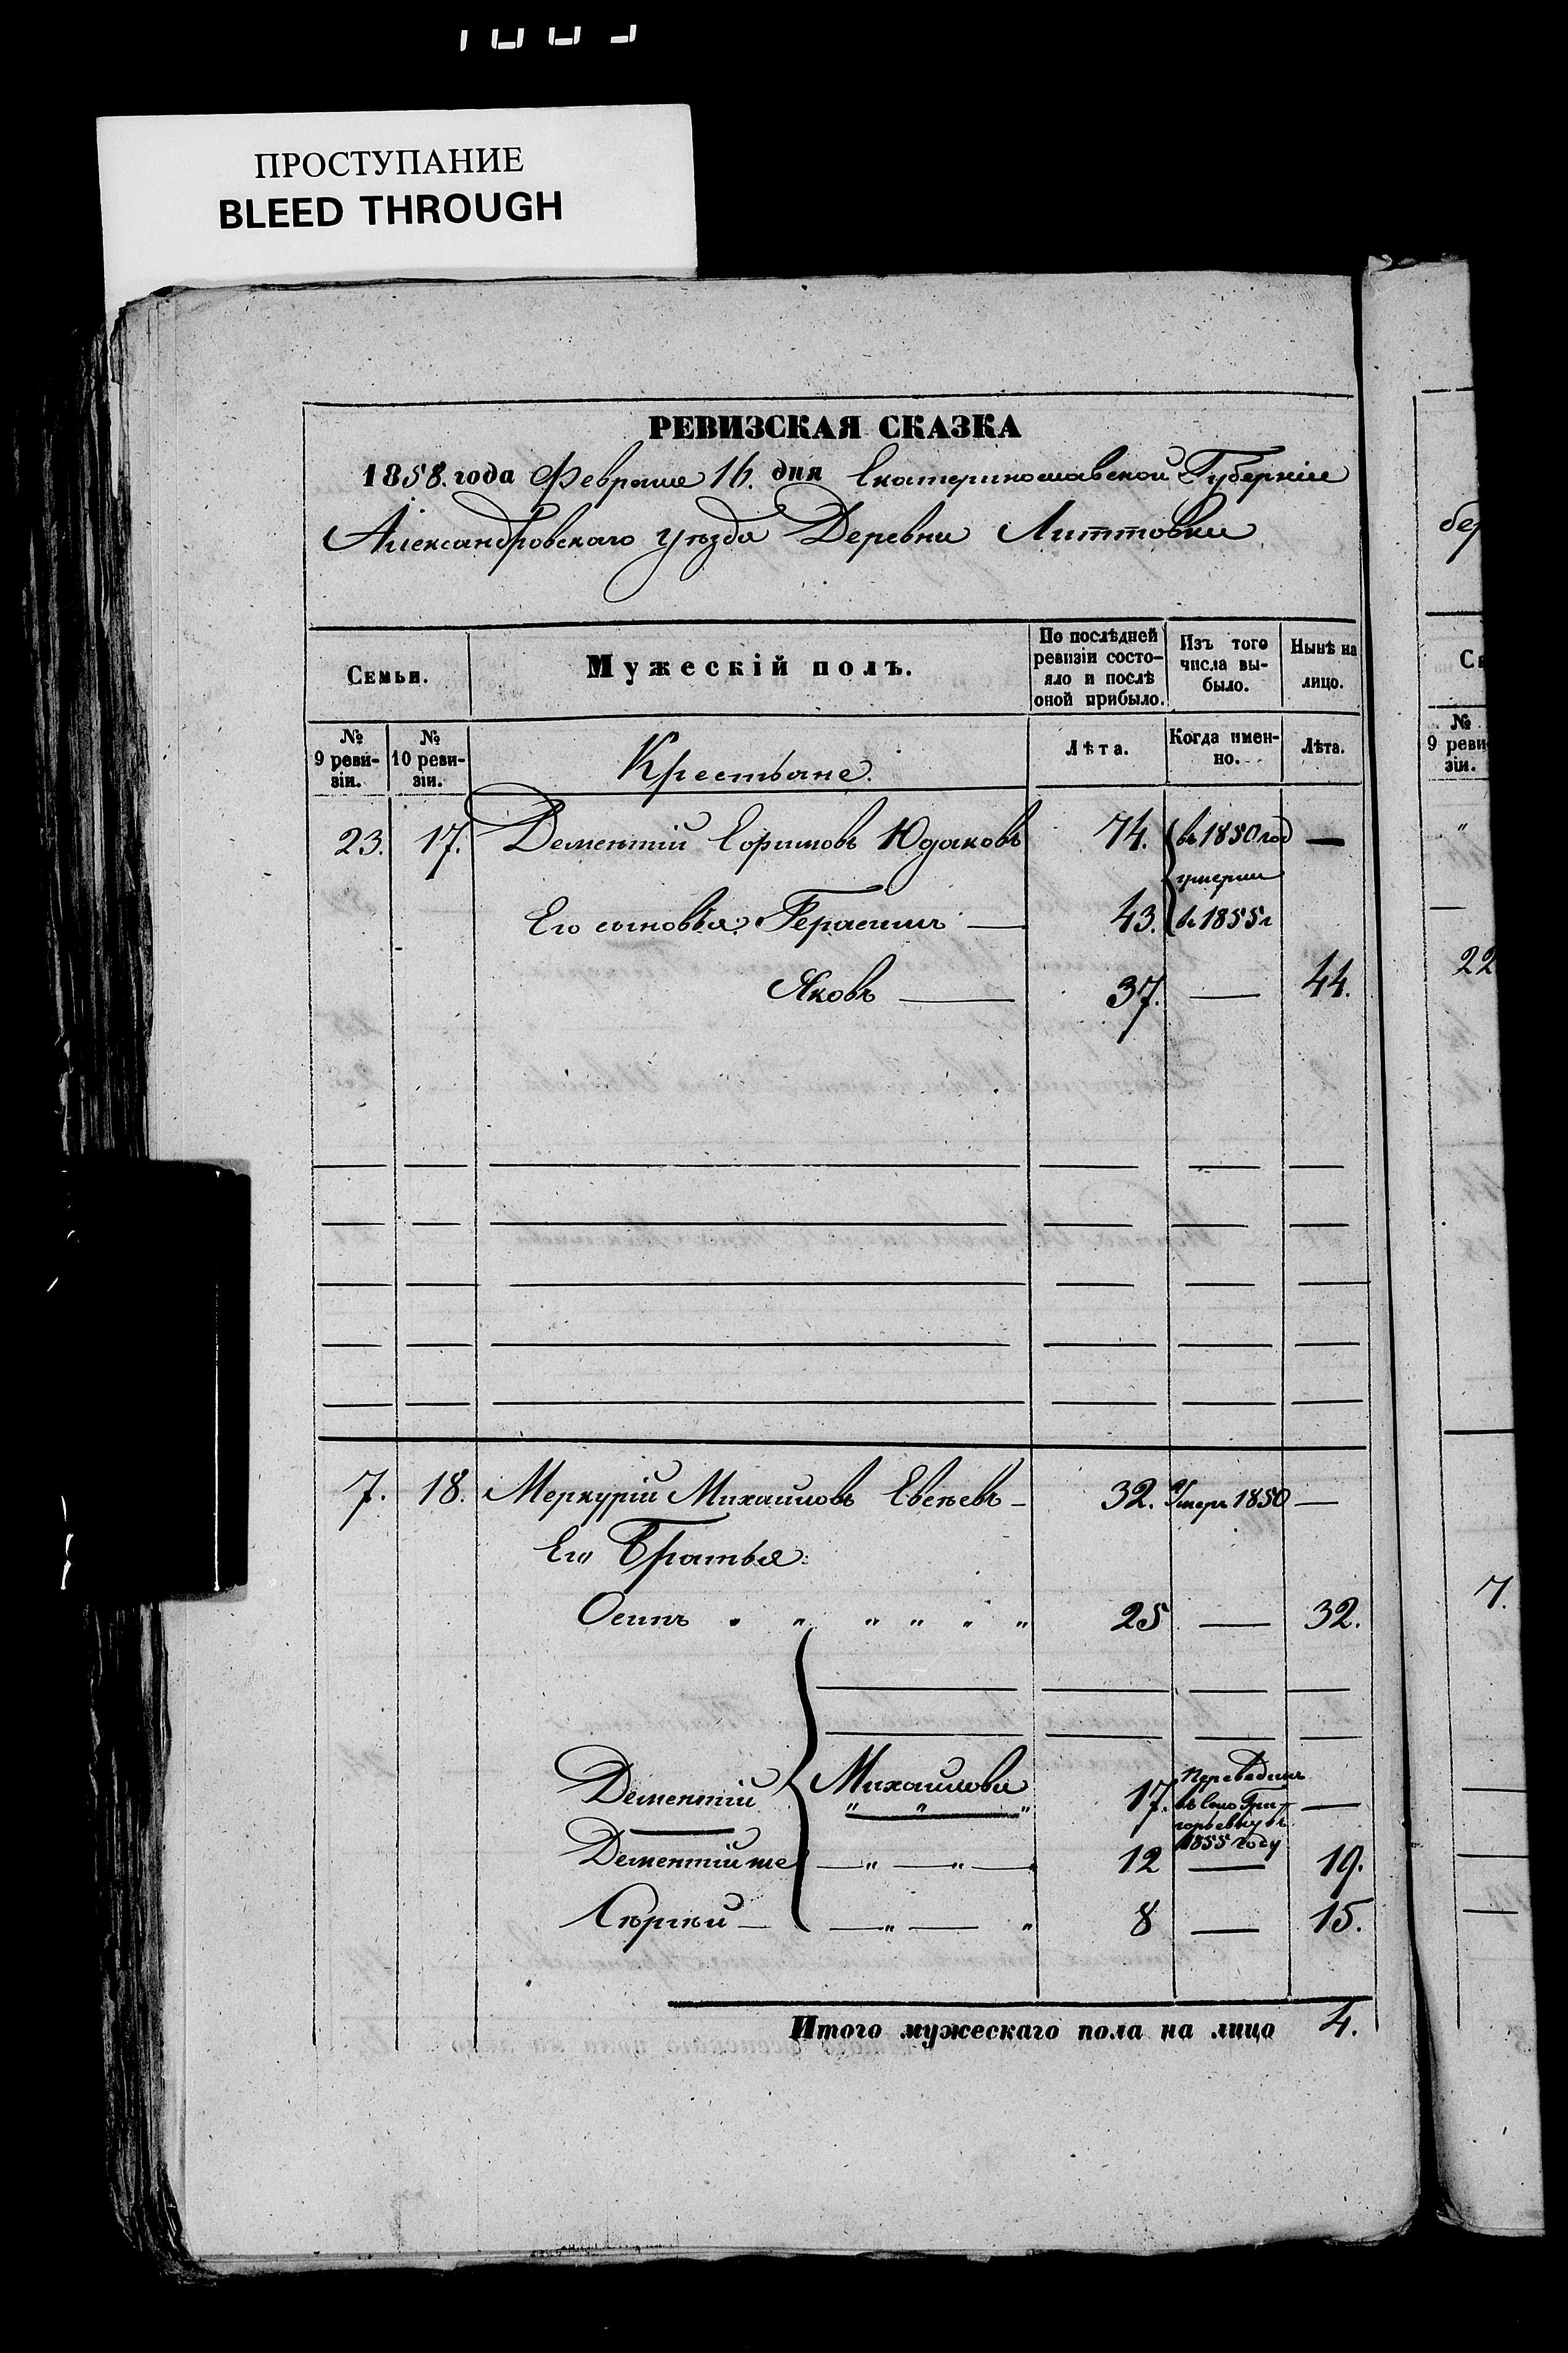 ПРОСТУПАНИЕ
BLEED THROUGH
РЕВИЗСКАЯ СКАЗКА
1858. года Февраля 16. дня Екатеринославской Губерніи
Александровскаго уѣзда Деревни Литтовки
Семьи.
Мужескій полъ.
По послѣдней ревизіи состо-
яло и послѣ оной прибыло.
Изъ того числа вы-
было.
Нынѣ на лицо.
№ 9 реви-
зіи.
№ 10 реви-
зіи.
Крестьяне.
Лѣта.
Когда имен-
но.
Лѣта.
23. 17. Дементій Ефимовъ 74. въ 1850 год —
умерли
Его сыновья: Герасимъ — 43. въ 1855 г
Яковъ — 37. — 44.
7. 18. Меркурій Михайловъ Евсѣевъ — 32. Умеръ 1850 —
Его Братья:
Осипъ " " " " " " 25 — 32.
Дементій Михайловы 17. Переведенъ —
въ село Гри-
горьевку въ
1855 году
Дементій же — " — " — 12 — 19.
Сергѣй — — " — " 8 — 15.
Итого мужескаго пола на лицо 4.
бер
Се
№
9 реви
зіи.
"
22
7.